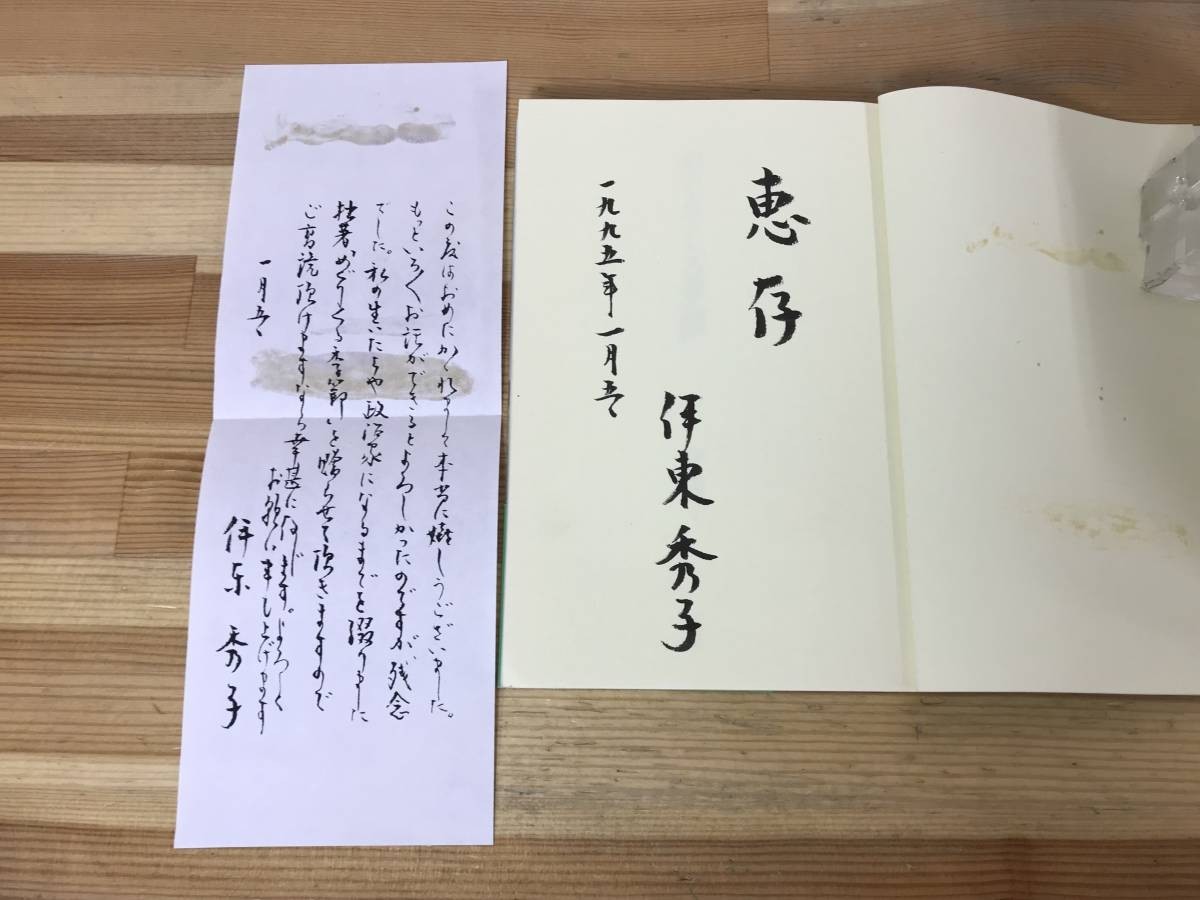 恵存
一九九五年 一月五日
伊東秀子
この度はおめにかゝれまして本当に嬉しうございました。
もっといろ〱お話ができるとよろしかったのですが、残念
でした。私の生いたちや政治家になるまでを綴りました
拙著「めぐりくる季節」を贈らせて頂きますので
ご高読頂けますなら幸甚に存じます。よろしく
お願い申し上げます
一月五日
伊東 秀子